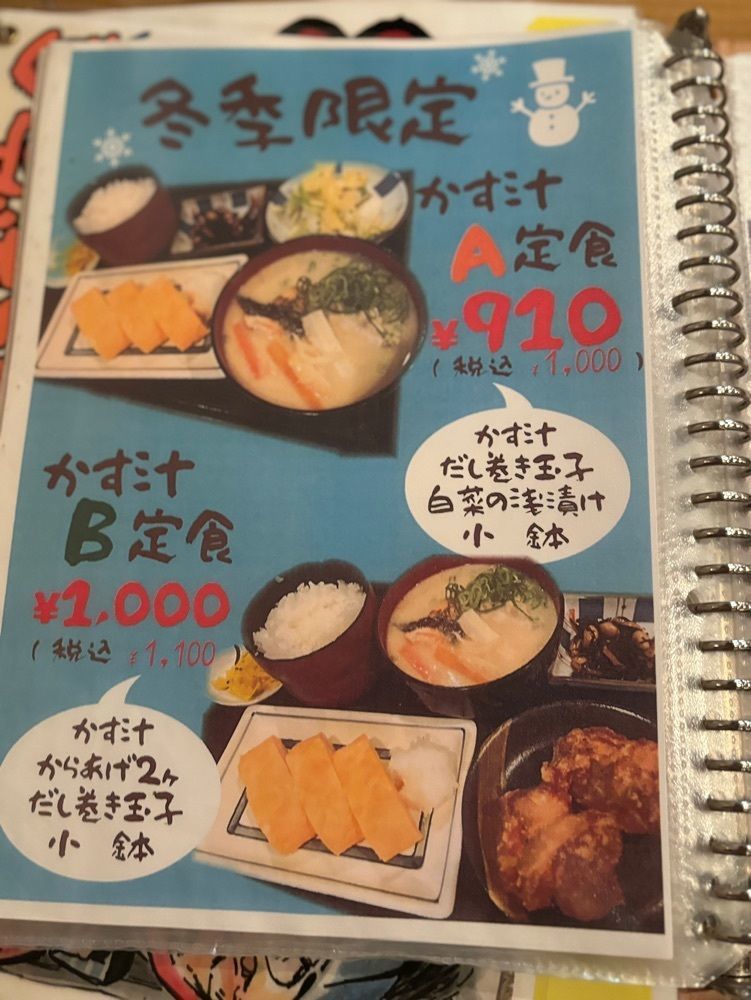 冬季限定
かす汁
A定食
¥910
(税込 ¥1,000)
かす汁
だし巻き玉子
白菜の浅漬け
小鉢
かす汁
B定食
¥1,000
(税込 ¥1,100)
かす汁
からあげ2ヶ
だし巻き玉子
小鉢